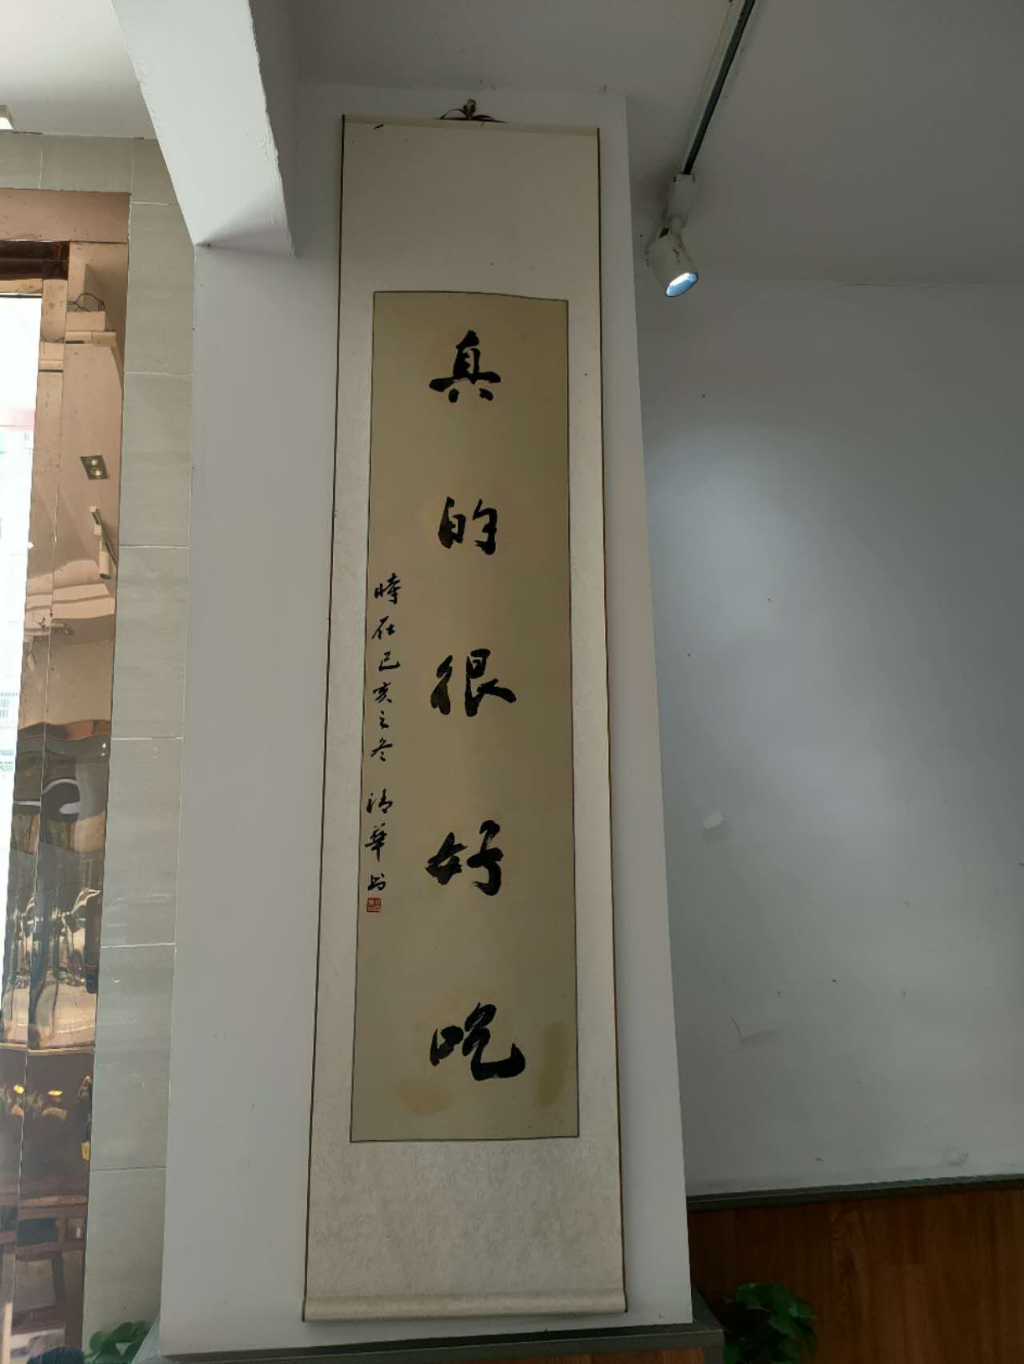 真的很好吃
時在己亥之冬 清華书